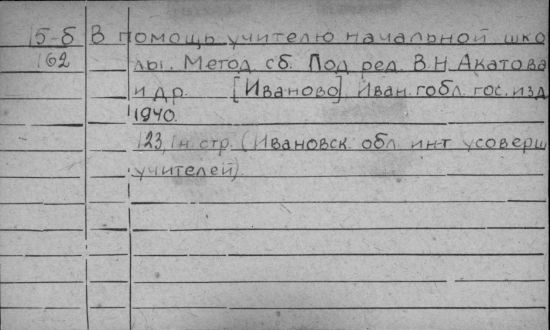 15-б В помощь учителю начальной шко
162 лы. Метод сб. Под ред. В.Н. Акатова
и др. [Иваново]. Иван. гобл. гос. изд
1940.
123, 1 н. стр. (Ивановск. обл ин-т усоверш
учителей).